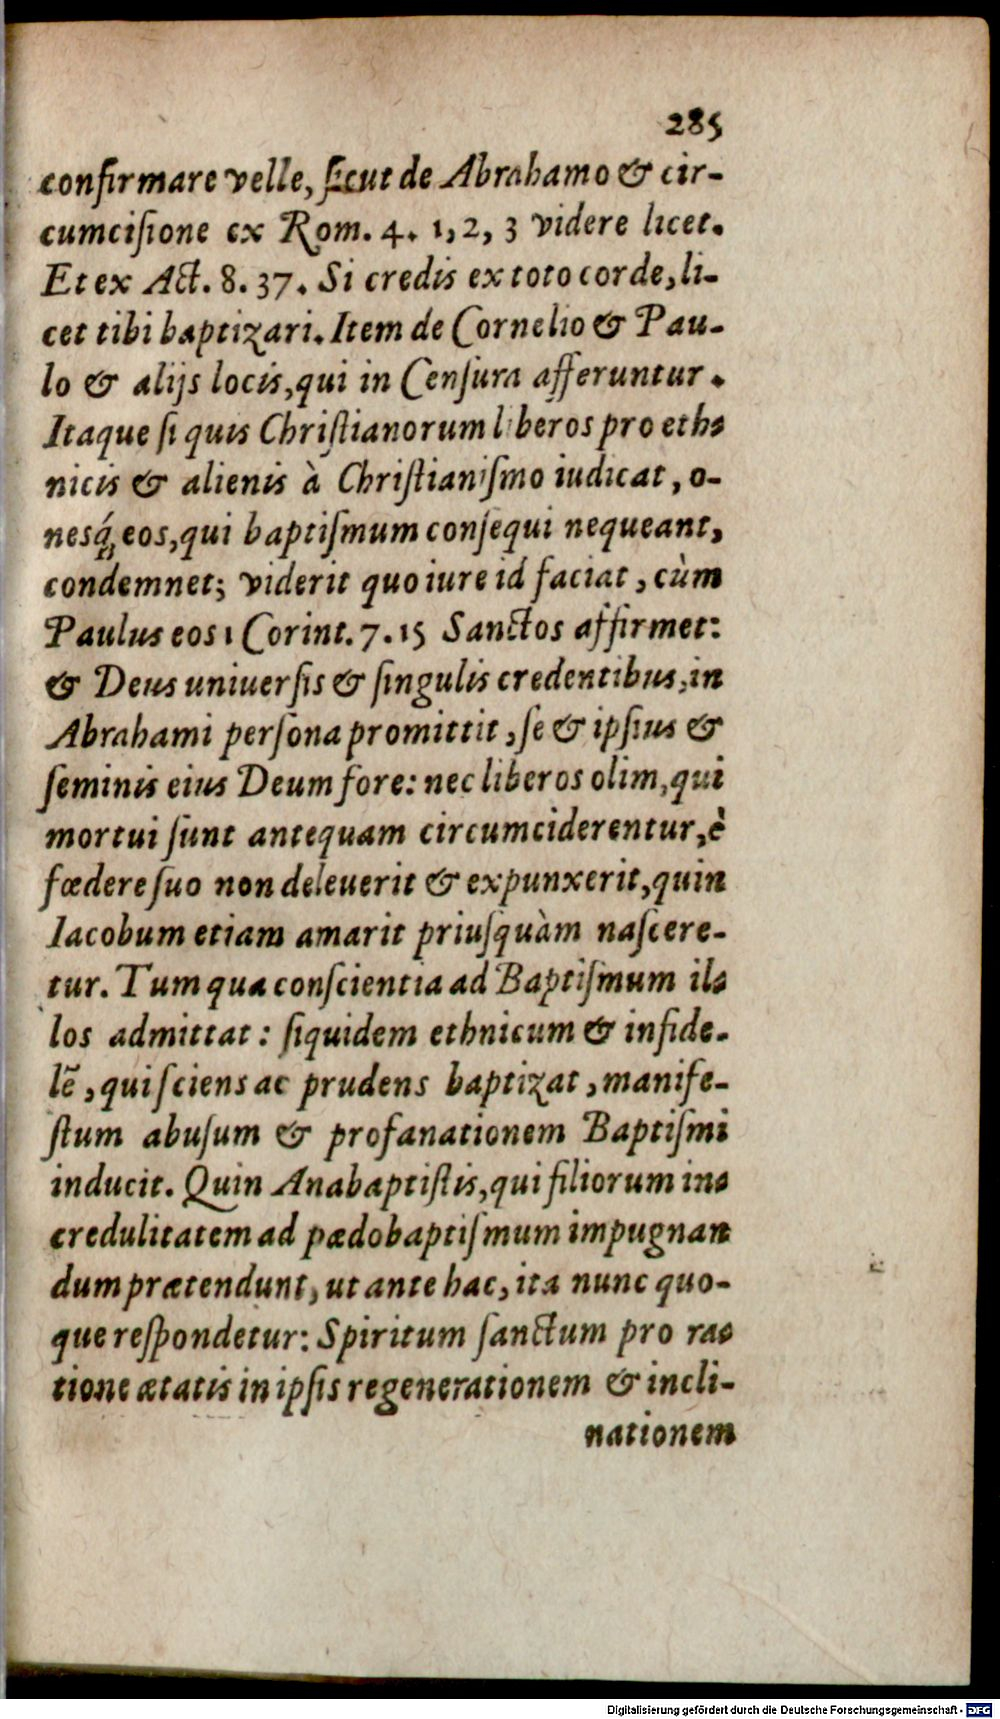 285
confirmare velle, ſicut de Abrahamo & cir-
cumciſione ex Rom. 4. 1, 2, 3 videre licet.
Et ex Act. 8. 37. Si credis ex toto corde, li-
cet tibi baptizari. Item de Cornelio & Pau-
lo & alijs locis, qui in Cenſura afferuntur.
Itaque ſi quis Chriſtianorum liberos pro eth-
nicis & alienis à Chriſtianiſmo iudicat, o-
nesq́ꝫ eos, qui baptiſmum conſequi nequeant,
condemnet; viderit quo iure id faciat, cùm
Paulus eos 1 Corint. 7. 15 Sanctos affirmet:
& Deus univerſis & ſingulis credentibus, in
Abrahami perſona promittit, ſe & ipſius &
ſeminis eius Deum fore: nec liberos olim, qui
mortui ſunt antequam circumciderentur, è
fœdere ſuo non deleverit & expunxerit, quin
Iacobum etiam amarit priuſquàm naſcere-
tur. Tum qua conſcientia ad Baptiſmum il-
los admittat: ſiquidem ethnicum & infide-
lē, qui ſciens ac prudens baptizat, manife-
ſtum abuſum & profanationem Baptiſmi
inducit. Quin Anabaptiſtis, qui filiorum in-
credulitatem ad pædobaptiſmum impugnan
dum prætendunt, ut ante hac, ita nunc quo-
que reſpondetur: Spiritum ſanctum pro ra-
tione ætatis in ipſis regenerationem & incli-
nationem
Digitalisierung gefördert durch die Deutsche Forschungsgemeinschaft - DFG